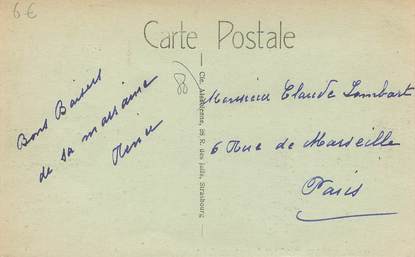 6€
Carte Postale
Bons Baisers
de sa marraine
Cie. Alsacienne, 25 R. des Juifs, Strasbourg
Monsieur Claude Lambart
6 Rue de Marseille
Paris